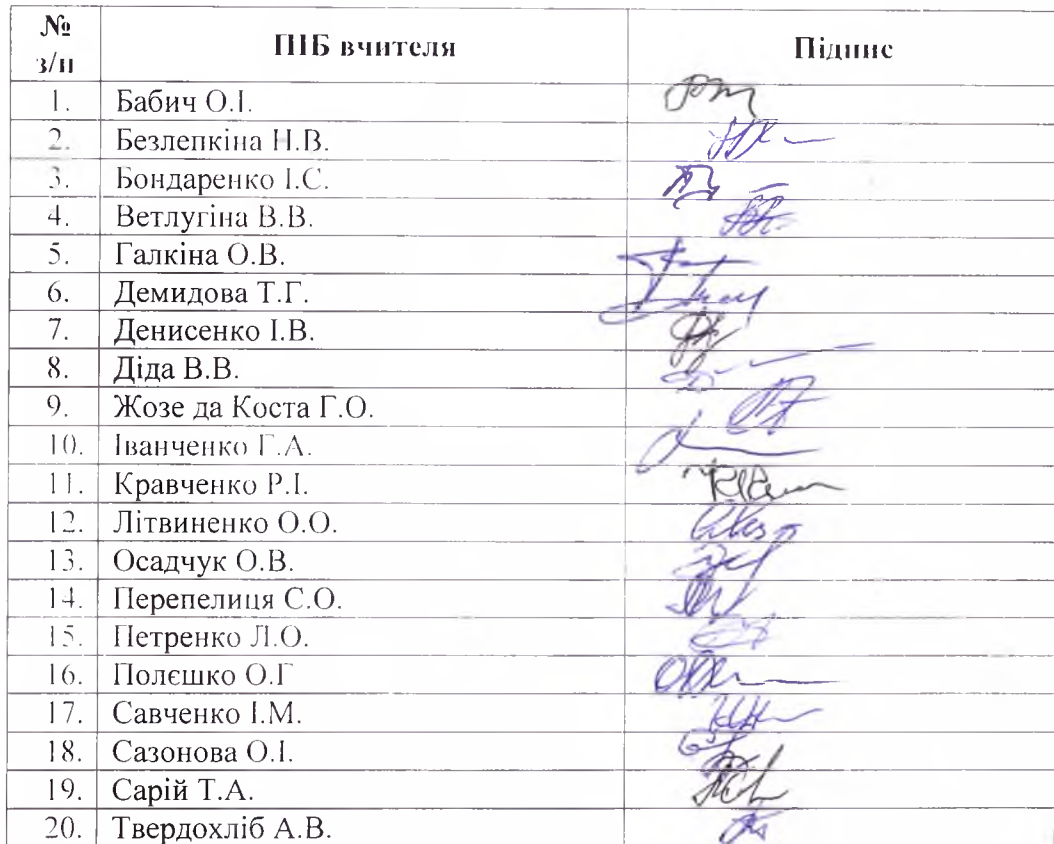 № з/п ПІБ вчителя Підпис
1. Бабич О.І.
2. Безлепкіна Н.В.
3. Бондаренко І.С.
4. Ветлугіна В.В.
5. Галкіна О.В.
6. Демидова Т.Г.
7. Денисенко І.В.
8. Діда В.В.
9. Жозе да Коста Г.О.
10. Іванченко Г.А.
11. Кравченко Р.І.
12. Літвиненко О.О.
13. Осадчук О.В.
14. Перепелиця С.О.
15. Петренко Л.О.
16. Полєшко О.Г
17. Савченко І.М.
18. Сазонова О.І.
19. Сарій Т.А.
20. Твердохліб А.В.